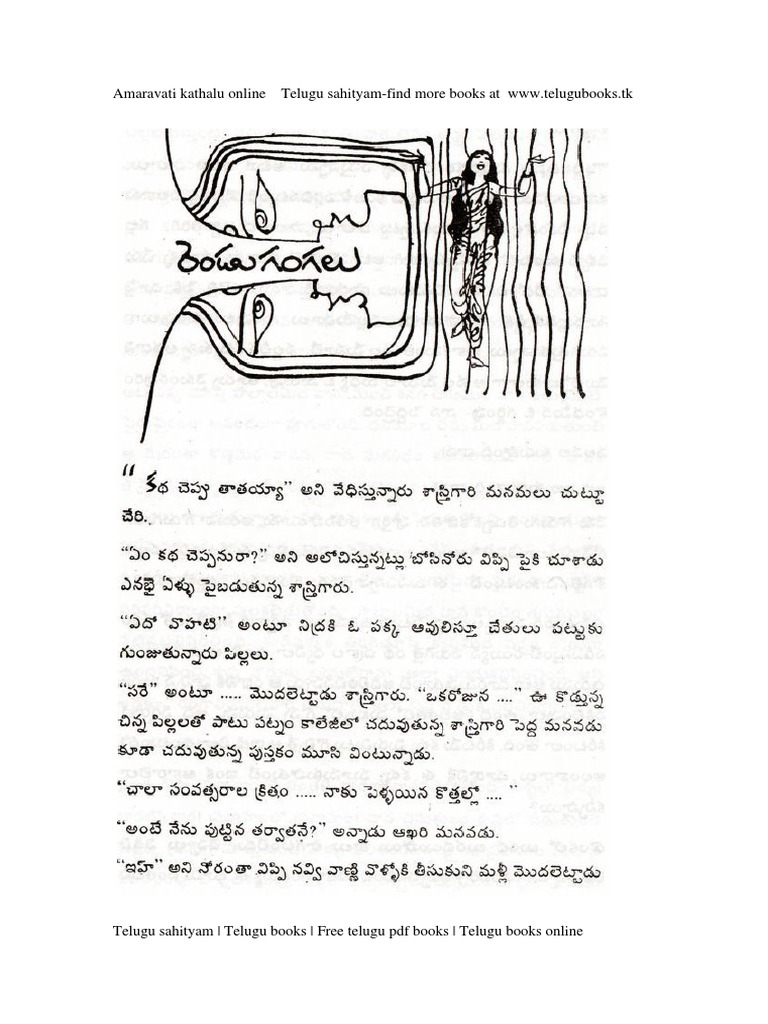 Amaravati kathalu online Telugu sahityam-find more books at www.telugubooks.tk
రెండు గంగలు
"కథ చెప్పు తాతయ్యా" అని వేధిస్తున్నారు శాస్త్రిగారి మనమలు చుట్టూ
చేరి.
"ఏం కథ చెప్పనురా?" అని ఆలోచిస్తున్నట్లు బోసినోరు విప్పి పైకి చూశాడు
ఎనభై ఏళ్ళు పైబడుతున్న శాస్త్రిగారు.
"ఏదో వొహటి" అంటూ నిద్రకి ఓ పక్క ఆవులిస్తూ చేతులు పట్టుకు
గుంజుతున్నారు పిల్లలు.
"సరే" అంటూ ..... మొదలెట్టాడు శాస్త్రిగారు. "ఒకరోజున ...." ఊ కొడ్తున్న
చిన్న పిల్లలతో పాటు పట్నం కాలేజీలో చదువుతున్న శాస్త్రిగారి పెద్ద మనవడు
కూడా చదువుతున్న పుస్తకం మూసి వింటున్నాడు.
"చాలా సంవత్సరాల క్రితం ..... నాకు పెళ్ళయిన కొత్తల్లో .... "
"అంటే నేను పుట్టిన తర్వాతనే?" అన్నాడు ఆఖరి మనవడు.
"ఇహ్" అని నోరంతా విప్పి నవ్వి వాణ్ణి వొళ్ళోకి తీసుకుని మళ్లీ మొదలెట్టాడు
Telugu sahityam | Telugu books | Free telugu pdf books | Telugu books online